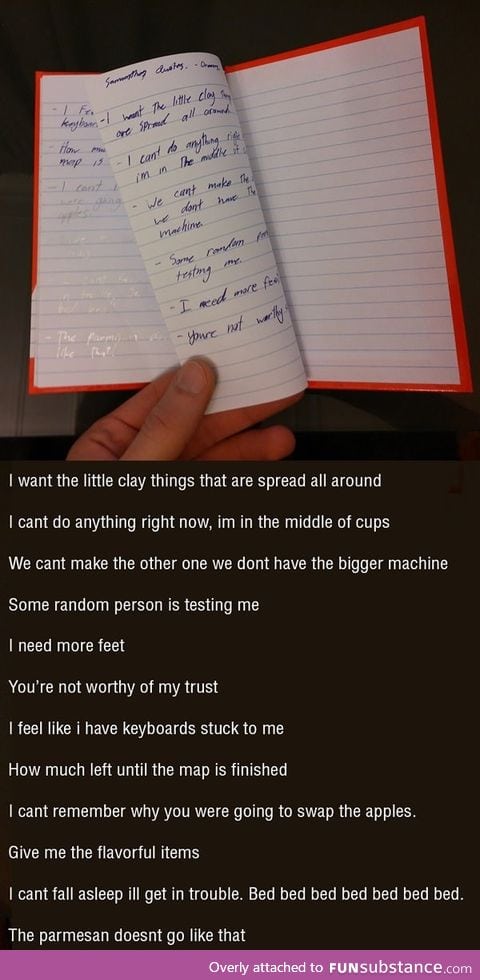 quotes.
- I
keyboar
- How
map is
- I cant
were going
apples.
- The
like that
- I want the little clay
are spread all around
- I cant do anything
im in the middle of
- We cant make the
we dont have the
machine.
- Some random
testing me.
- I need more fee
- Youre not worthy
I want the little clay things that are spread all around
I cant do anything right now, im in the middle of cups
We cant make the other one we dont have the bigger machine
Some random person is testing me
I need more feet
You're not worthy of my trust
I feel like i have keyboards stuck to me
How much left until the map is finished
I cant remember why you were going to swap the apples.
Give me the flavorful items
I cant fall asleep ill get in trouble. Bed bed bed bed bed bed bed.
The parmesan doesnt go like that
Overly attached to FUNsubstance.com